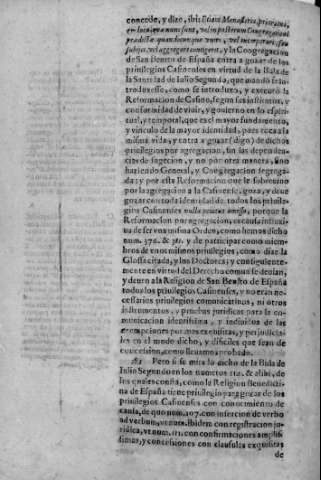 concede, y dize, ibi: Etiam Monasteria, prioratus,
en loca, quæ nunc sunt, vel in posterum Congregationi
prædictæ quandocunque vniri, vel incorporari, seu
subijci, vel aggregari contigerit, y la Congregacion
de San Benito de España entra a gozar de los
priuilegios Casinenses en virtud de la Bula de
la Santidad de Iulio Segundo, que mandò se in-
troduxesse, como se introduxo, y executò la
Reformacion de Casino, segun sus institutos, y
conformidad de viuir, y gouierno en lo espiri-
tual, y temporal, que es el mayor fundamento,
y vinculo de la mayor identidad, pues toca a la
misma vida, y entra a gozar (digo) de dichos
priuilegios por agregacion, sin las dependen-
cias de sugecion, y no por otra manera, sino
haziendo General, y Congregacion segrega-
da; y por esta Reformacion que le sobreuino
por la agregacion a la Casinense, goza, y deue
gozar con toda identidad de todos los priuile-
gios Casinenses nullo penitus amisso, porque la
Reformacion por agregacion, con essa institu-
ta de ser vna misma Orden, como hemos dicho
num. 376. & 381. y de participar como miem-
bros de vnos mismos priuilegios, como dize la
Glossa citada, y los Doctores; y consiguiente-
mente en virtud del Derecho comun se deuian,
y deuen a la Religion de San Benito de España
todos los priuilegios Casinenses, y no eran ne-
cessarios priuilegios comunicatiuos, ni otros
instrumentos, y prueuas juridicas para la co-
municacion identissima, y indiuisa de las
exempciones por mas exquisitas, y perjudicia-
les en el modo dicho, y dificiles que sean de
concession, como lleuamos probado.
Pero si se mira lo dicho de la Bula de
Iulio Segundo en los numeros & alibi, de
los quales consta, como la Religion Benedicti-
na de España tiene priuilegio para gozar de los
priuilegios Casinenses con conocimiento de
causa, de quo num. 107. con insercion de verbo
ad verbum, ve num. ibidem con registracion ju-
ridica, ve num. 111. con confirmaciones amplis-
simas, y concessiones con clausulas exquisitas
de